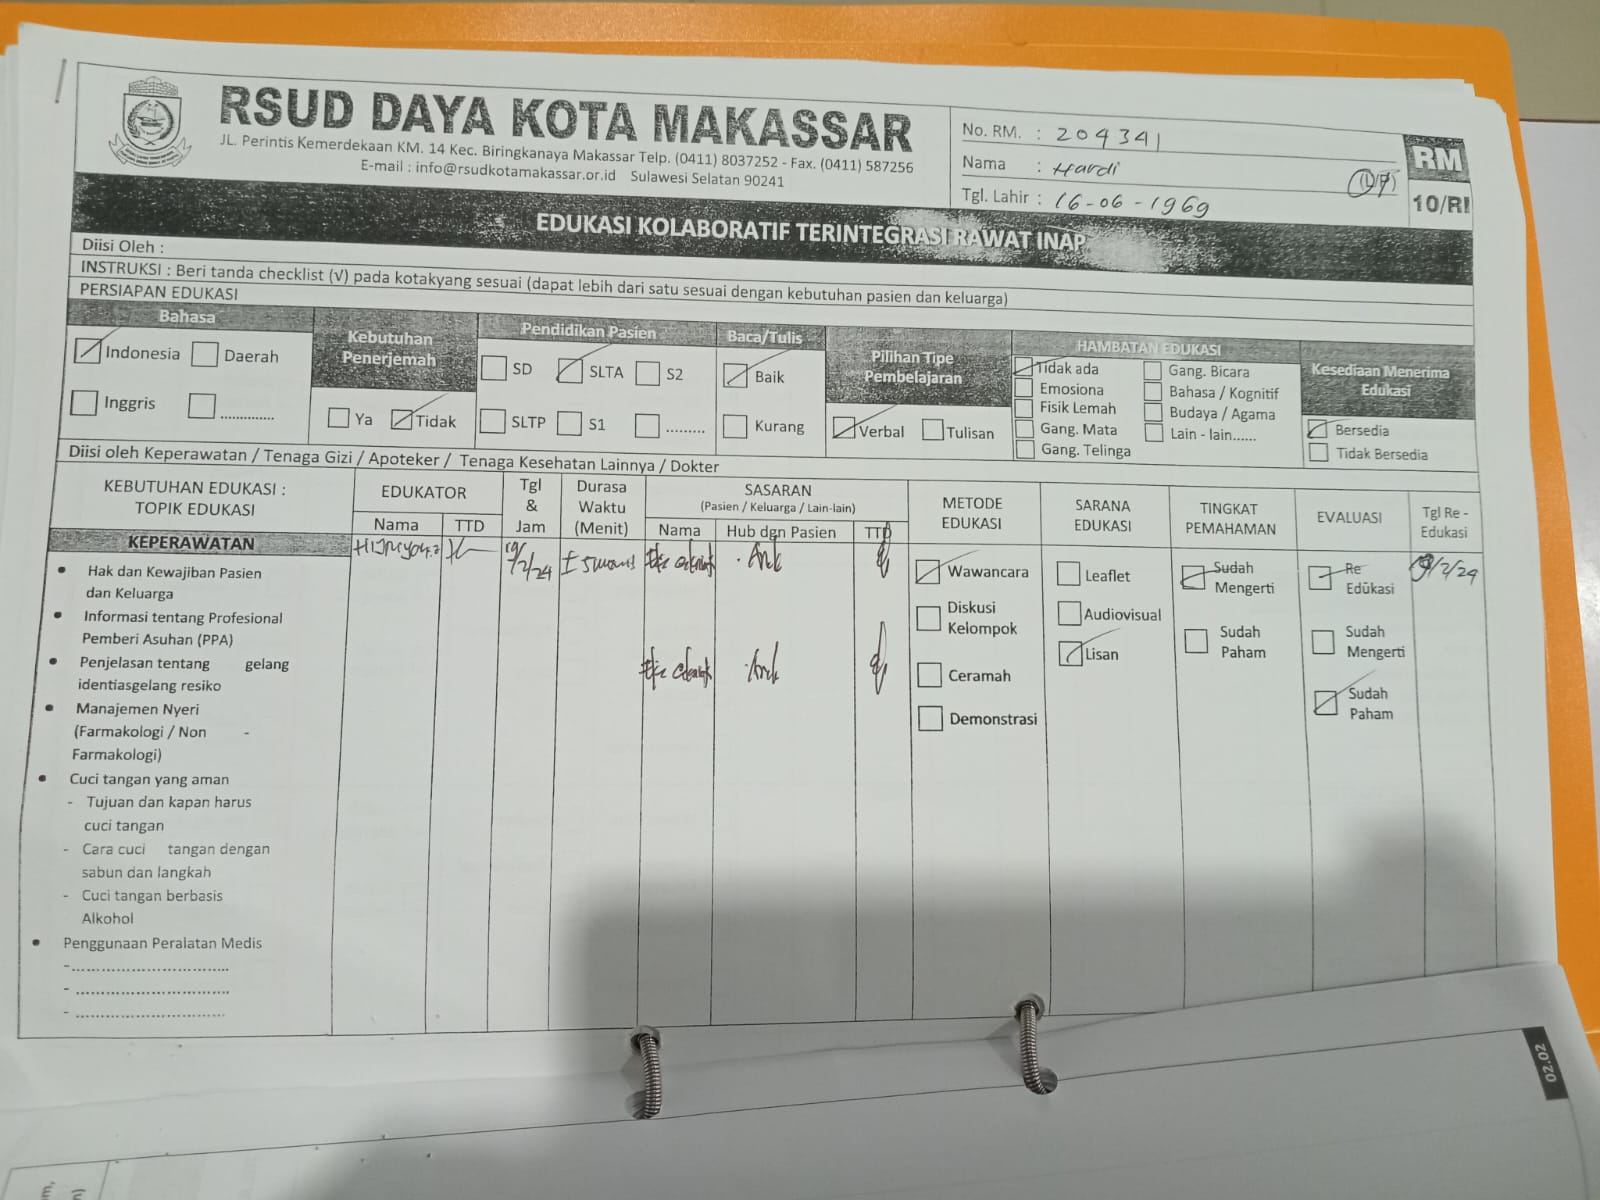 RSUD DAYA KOTA MAKASSAR
JL. Perintis Kemerdekaan KM. 14 Kec. Biringkanaya Makassar Telp. (0411) 8037252 - Fax. (0411) 587256
E-mail : info@rsudkotamakassar.or.id Sulawesi Selatan 90241
No. RM. : 204341
Nama : Hardi (L/P)
Tgl. Lahir : 16-06-1969
RM
10/RI
EDUKASI KOLABORATIF TERINTEGRASI RAWAT INAP
Diisi Oleh :
INSTRUKSI : Beri tanda checklist (√) pada kotakyang sesuai (dapat lebih dari satu sesuai dengan kebutuhan pasien dan keluarga)
PERSIAPAN EDUKASI
Bahasa
Indonesia Daerah
Inggris ..............
Kebutuhan
Penerjemah
Ya Tidak
Pendidikan Pasien
SD SLTA S2
SLTP S1 .........
Baca/Tulis
Baik
Kurang
Pilihan Tipe
Pembelajaran
Verbal Tulisan
HAMBATAN EDUKASI
Tidak ada Gang. Bicara
Emosiona Bahasa / Kognitif
Fisik Lemah Budaya / Agama
Gang. Mata Lain - lain......
Gang. Telinga
Kesediaan Menerima
Edukasi
Bersedia
Tidak Bersedia
Diisi oleh Keperawatan / Tenaga Gizi / Apoteker / Tenaga Kesehatan Lainnya / Dokter
KEBUTUHAN EDUKASI :
TOPIK EDUKASI
EDUKATOR
Nama TTD
Tgl
&
Jam
Durasa
Waktu
(Menit)
SASARAN
(Pasien / Keluarga / Lain-lain)
Nama Hub dgn Pasien TTD
METODE
EDUKASI
SARANA
EDUKASI
TINGKAT
PEMAHAMAN
EVALUASI
Tgl Re -
Edukasi
KEPERAWATAN
19/2/24
• Hak dan Kewajiban Pasien
dan Keluarga
• Informasi tentang Profesional
Pemberi Asuhan (PPA)
• Penjelasan tentang gelang
identiasgelang resiko
• Manajemen Nyeri
(Farmakologi / Non -
Farmakologi)
• Cuci tangan yang aman
- Tujuan dan kapan harus
cuci tangan
- Cara cuci tangan dengan
sabun dan langkah
- Cuci tangan berbasis
Alkohol
• Penggunaan Peralatan Medis
-................................
- ...............................
- ..............................
Wawancara
Diskusi
Kelompok
Ceramah
Demonstrasi
Leaflet
Audiovisual
Lisan
Sudah
Mengerti
Sudah
Paham
Re
Edukasi
Sudah
Mengerti
Sudah
Paham
02.02